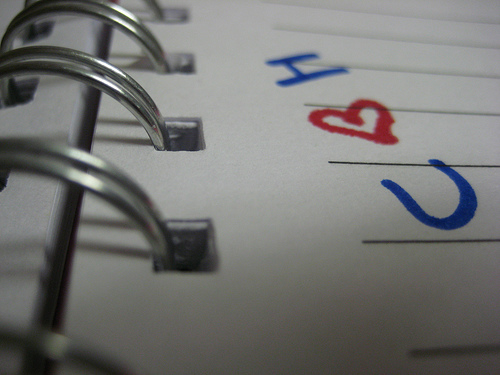 I
♥
U